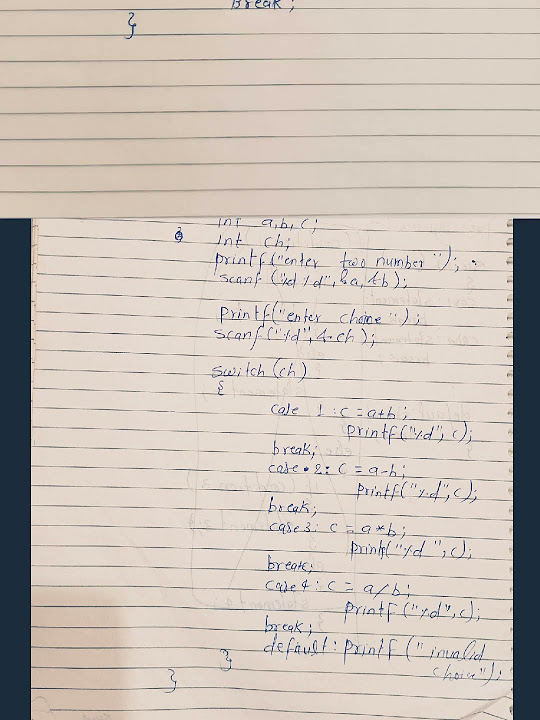 Break;
}
int a,b,c;
int ch;
printf("enter two number");
scanf ("%d %d", &a, &b);
Printf("enter choice");
scanf("%d", &ch);
switch (ch)
{
case 1 : c = a+b;
printf("%d", c);
break;
case 2: c = a-b;
printf("%d", c);
break;
case 3: c = a*b;
printf("%d ", c);
break;
case 4 : c = a/b;
printf ("%d", c);
break;
default: printf (" invalid
choice");
}
}